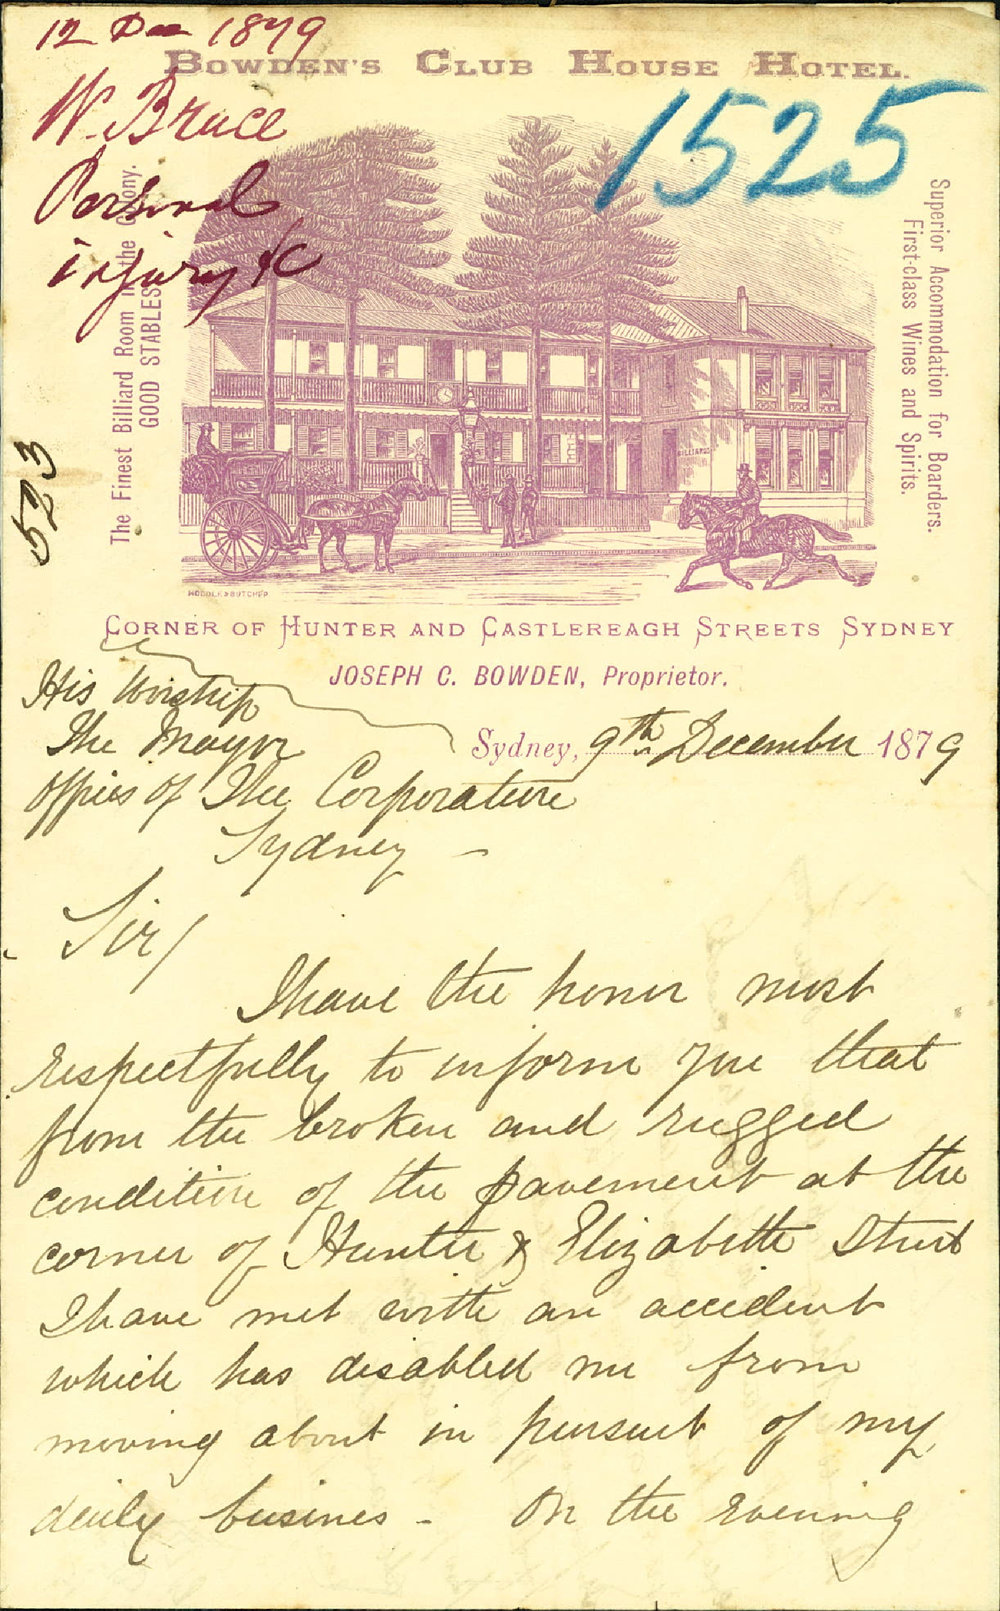 12 Dec 1879
BOWDEN'S CLUB HOUSE HOTEL.
W. Bruce
Personal
injury &c
1525
523
The Finest Billiard Room in the Colony.
GOOD STABLES
Superior Accommodation for Boarders.
First-class Wines and Spirits.
BILLIARDS
CORNER OF HUNTER AND CASTLEREAGH STREETS SYDNEY
JOSEPH C. BOWDEN, Proprietor.
Sydney, 9th December 1879
His Worship
The Mayor
Offices of The Corporation
Sydney –
Sir/
I have the honor most
respectfully to inform you that
from the broken and rugged
condition of the pavement at the
corner of Hunter & Elizabeth Street
I have met with an accident
which has disabled me from
moving about in pursuit of my
daily business – On the evening